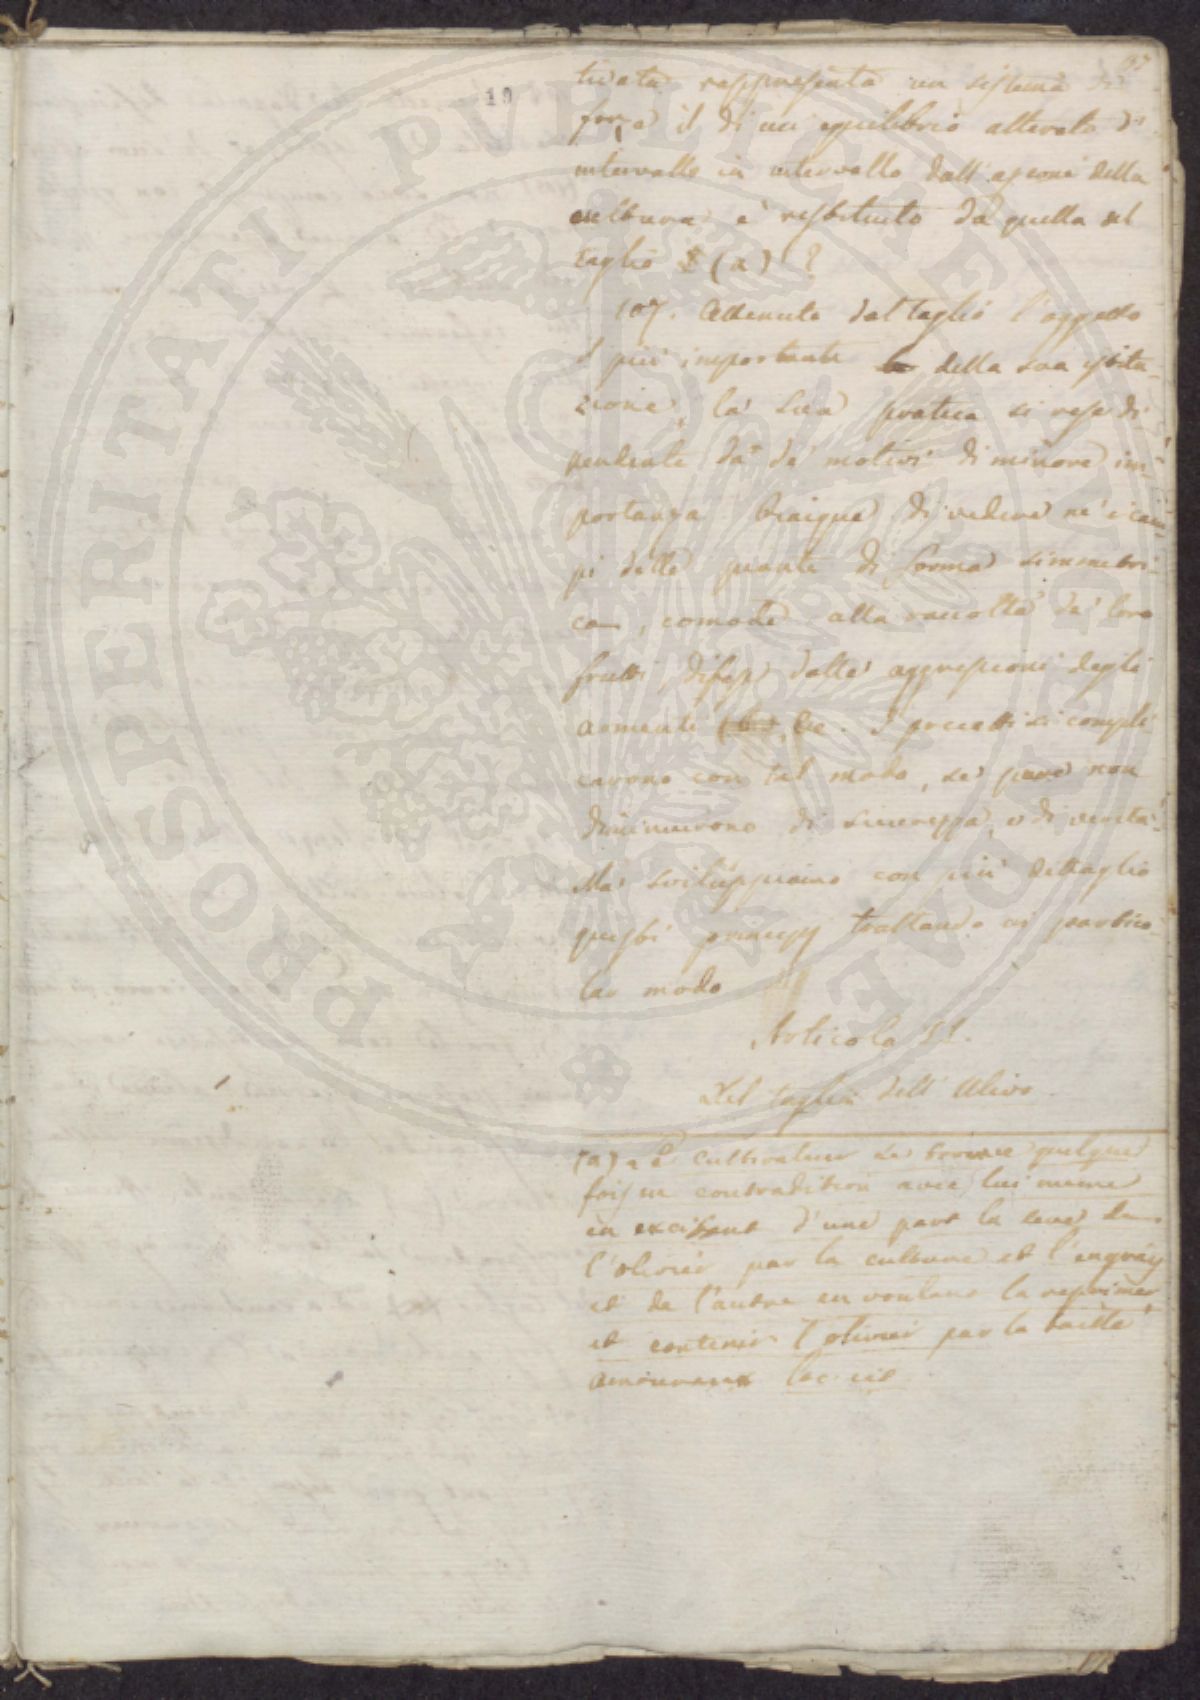 67
19
tivata rappresenta un sistema di
forze il di cui equilibrio alterato di
intervallo in intervallo dall'azione della
cultura è restituito da quella del
taglio (a) ?
107. Ottenuto dal taglio l'oggetto
il più importante della sua istitu-
zione, la sua pratica si rese di
pendente da de' motivi di minore im-
portanza. Bisigna di vedere ne' i cam-
pi delle piante di forma simmetri-
ca, comode alla raccolta de' loro
frutti, difese dalle aggressioni degli
armenti &c. I precetti si compli
carono con tal modo, se pure non
diminuirono di sicurezza, e di verità.
Ma sviluppiamo con più dettaglio
questi principj trattando in partico-
lar modo
Articolo II.
Del taglio dell'Ulivo.
(a) Le cultivateur se trouve quelque
fois en contradition avec lui meme
en excitant d'une part la seve de
l'olivier par la culture et l'engrais
et de l'autre en voulant la reprimer
et contenir l'olivier par la taille
Amoureux loc. cit.
PROSPERITATI PUBLICAE AUGENDAE